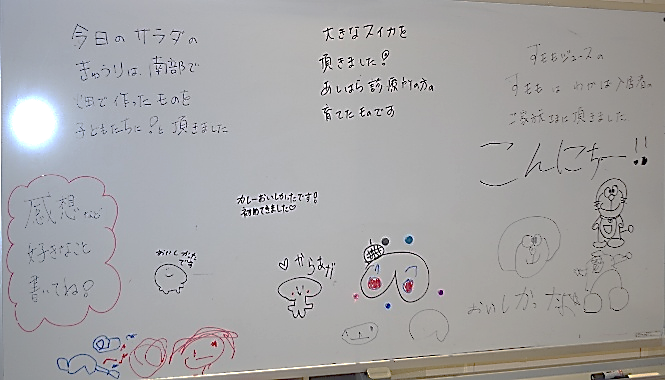 今日のサラダの
きゅうりは、南部で
畑で作ったものを
子どもたちに!と頂きました
大きなスイカを
頂きました!
あいはら診療所の方の
育てたものです
すももジュースの
すももは
頂きました
こんにちー!!
感想など
好きなこと
書いてね!
カレーおいしかったです!
初めてきました♡
おいしかった
です
おいしかった